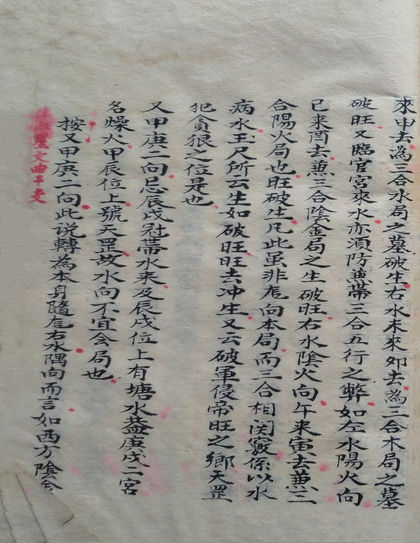 來申去為三合水局之墓破生右水未來夘去為三合木局之墓
破旺又臨官宮來水亦須防兼帶三合五行之弊如左水陽火向
巳來酉去兼三合陰金局之生破旺右水陰火向午來寅去兼三
合陽火局也旺破生凡此虽非危向本局而三合相関竅係以水
病水玉尺所云生如破旺旺去冲生又云破軍侵帝旺之鄉天罡
犯貪狼之位是也
又甲庚二向忌辰戌冠帶水来及辰戌位上有塘水葢庚戌二宮
名燥火甲辰位上號天罡故水向不宜会局也
按又甲庚二向此说轉為本身隨危右水隅向而言如西方陰金
文曲